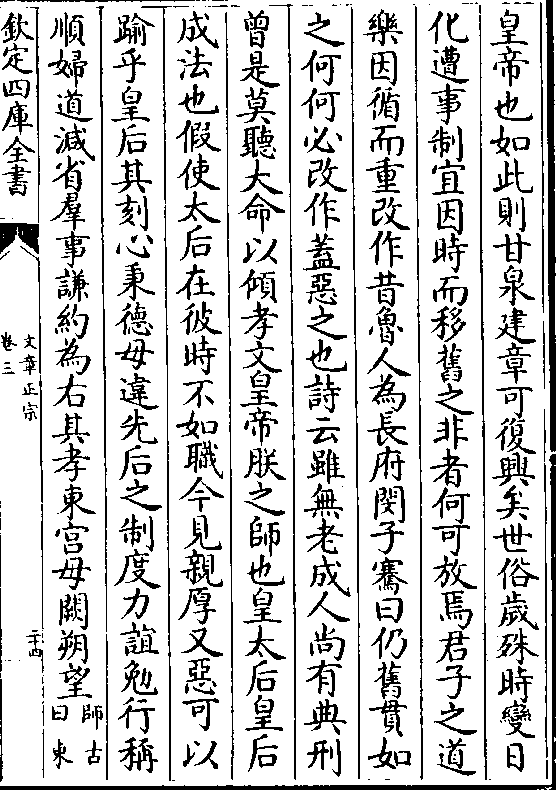 皇帝也如此則甘泉建章可復興矣世俗歳殊時變日
化遭事制宜因時而移舊之非者何可放焉君子之道
樂因循而重改作昔魯人為長府閔子騫曰仍舊貫如
之何何必改作葢惡之也詩云雖無老成人尚有典刑
曾是莫聽大命以傾孝文皇帝朕之師也皇太后皇后
成法也假使太后在彼時不如職今見親厚又惡可以
踰乎皇后其刻心秉德毋違先后之制度力誼勉行稱
順婦道減省羣事謙約為右其孝東宫毋闕朔望師古
曰東
欽定四庫全書
文章正宗
卷三
二十四